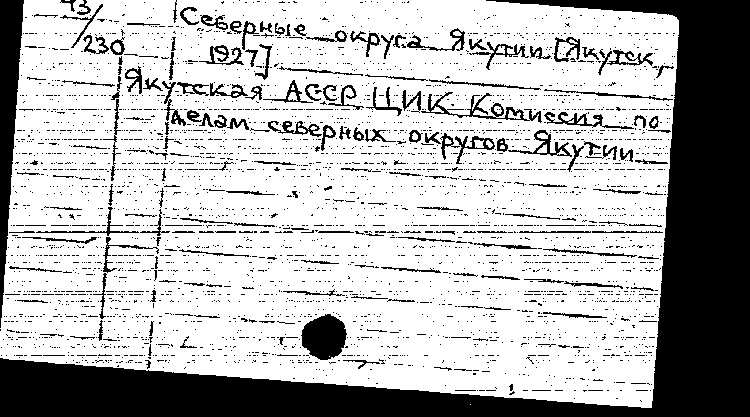 43/
230
Северные округа Якутии [Якутск,
1927]
Якутская АССР ЦИК Комиссия по
делам северных округов Якутии